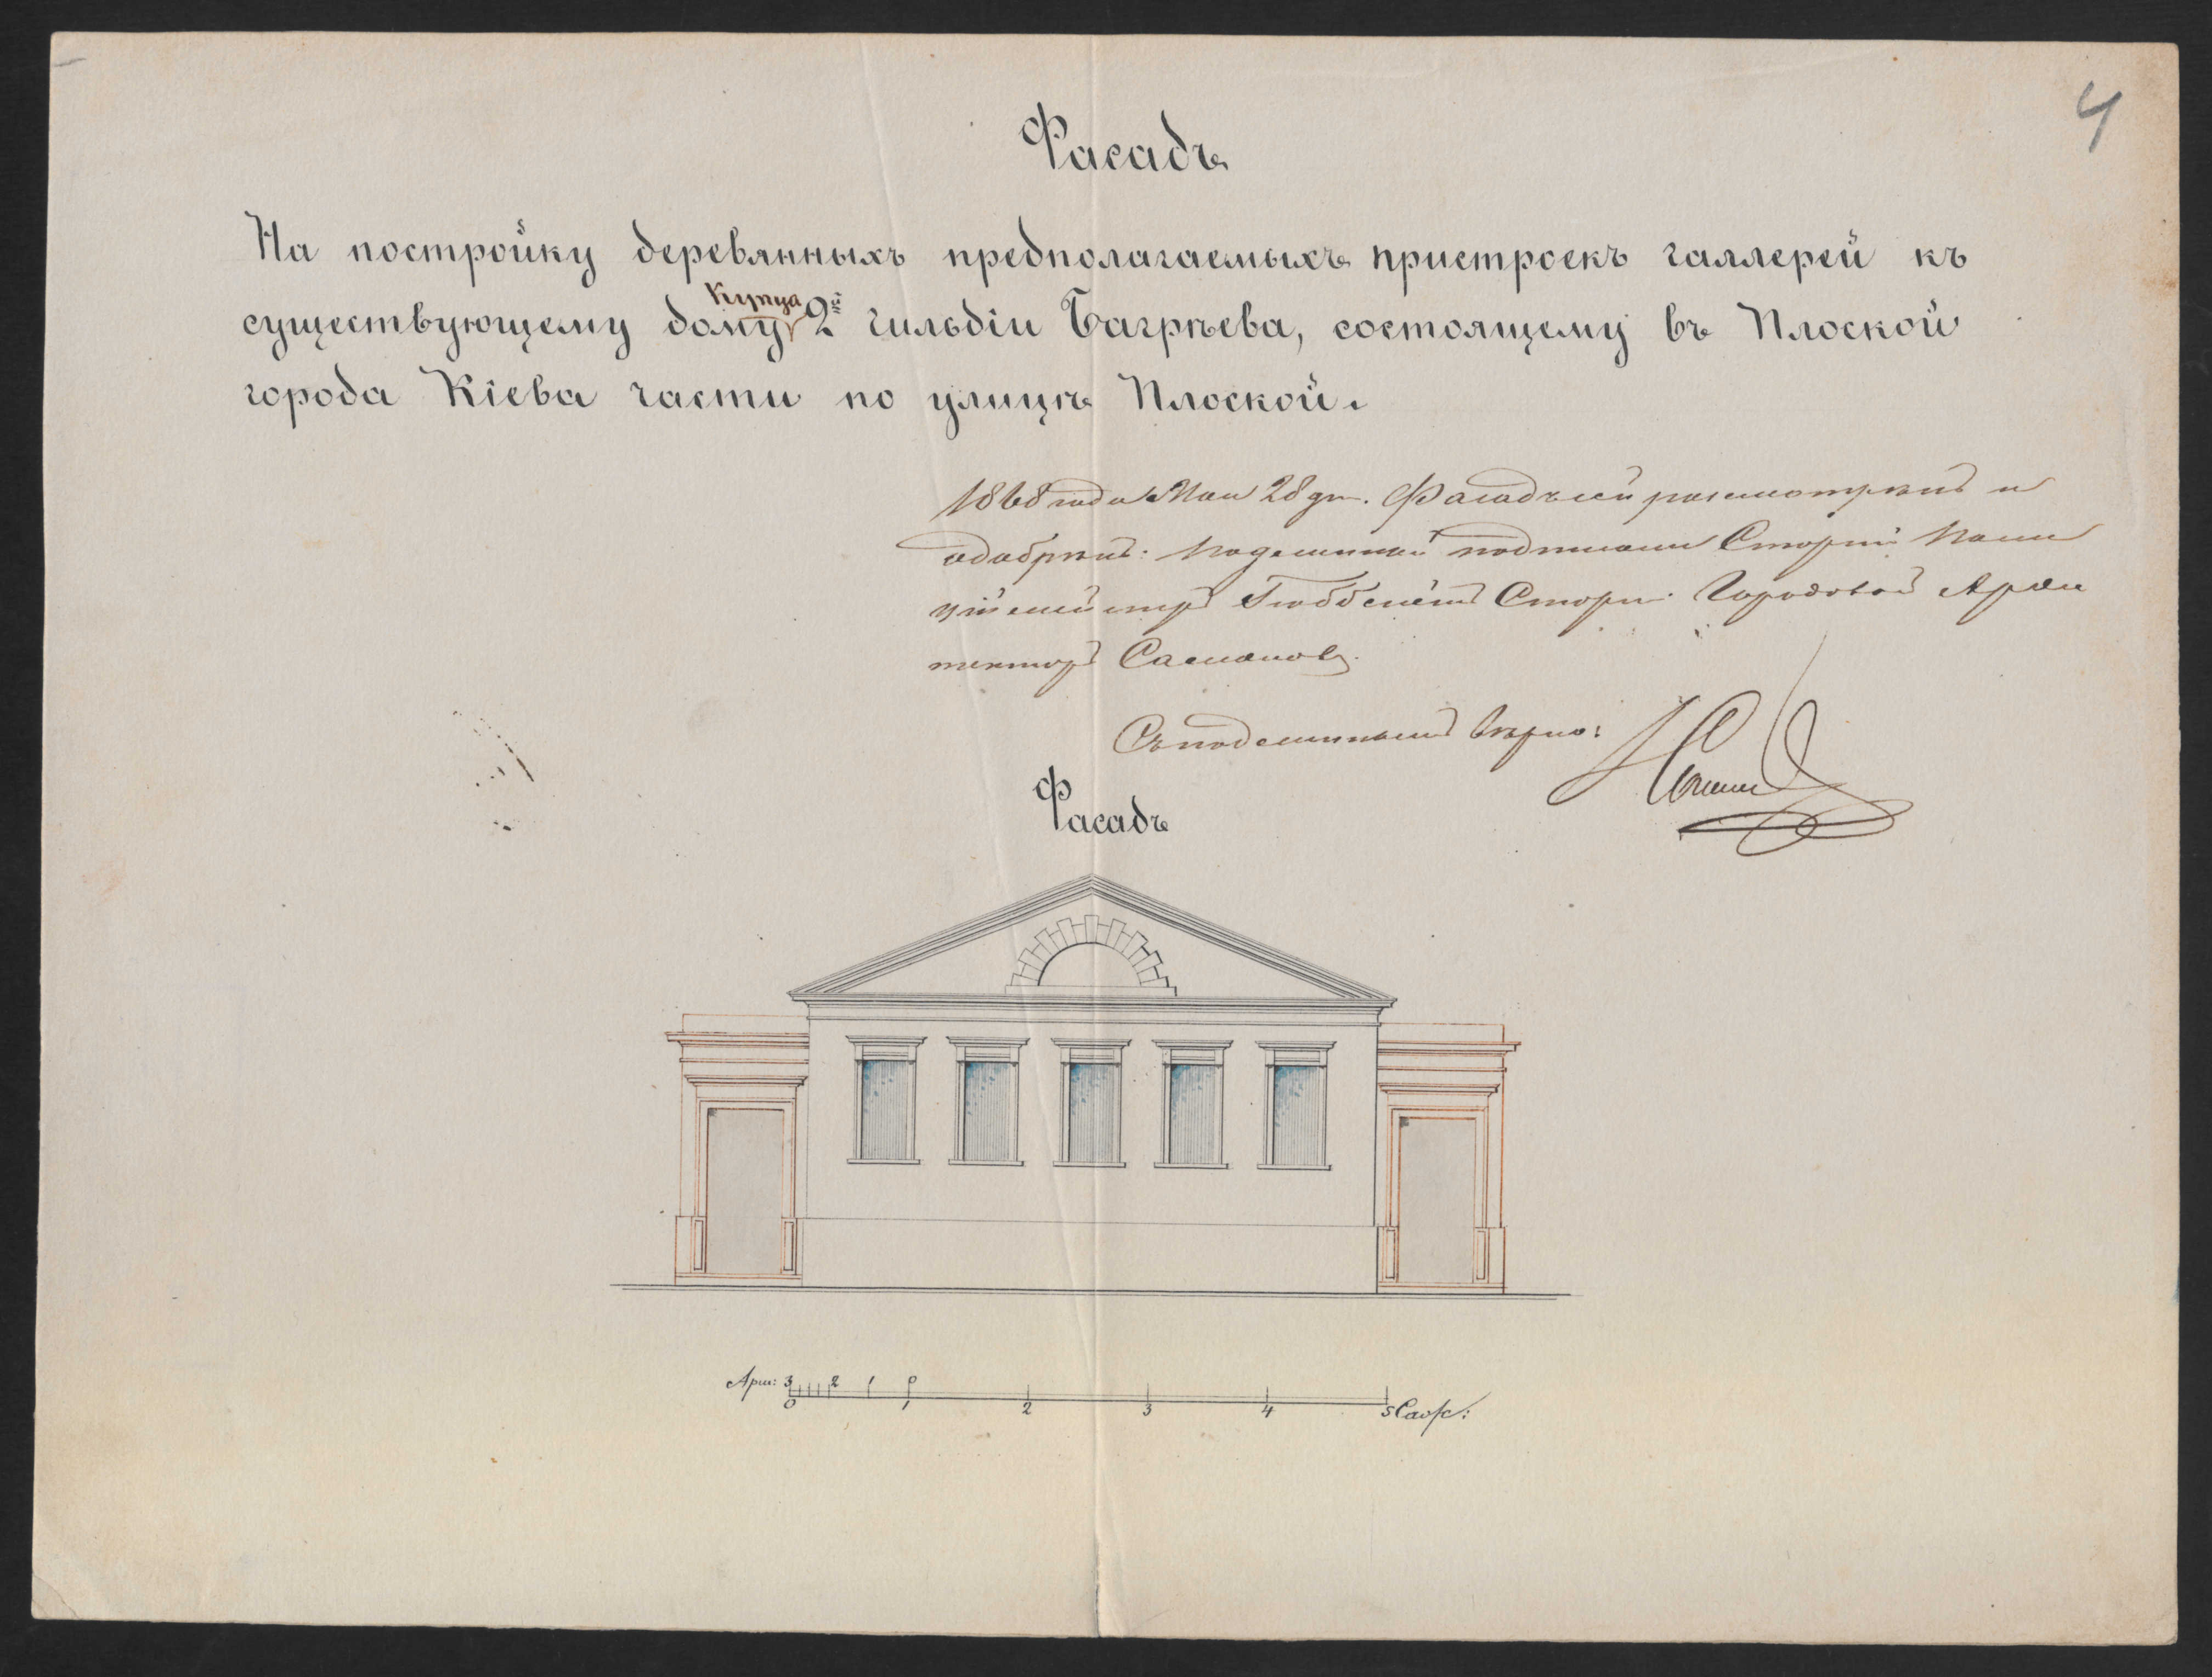 4
Фасадъ
На постройку деревянныхъ предполагаемыхъ пристроекъ галлерей къ
купца
существующему дому 2й гильдіи Багрѣева, состоящему въ Плоской
города Кіева части по улицѣ Плоской.
1868 года Мая 28 дн. Фасадъ сей разсмотрѣнъ и
одобренъ: Подлинный подписали
Городовой Архи
текторъ
Съ подлиннымъ вѣрно:
Фасадъ
Арш: 3 2 1 0
0 1 2 3 4 5 Саж: